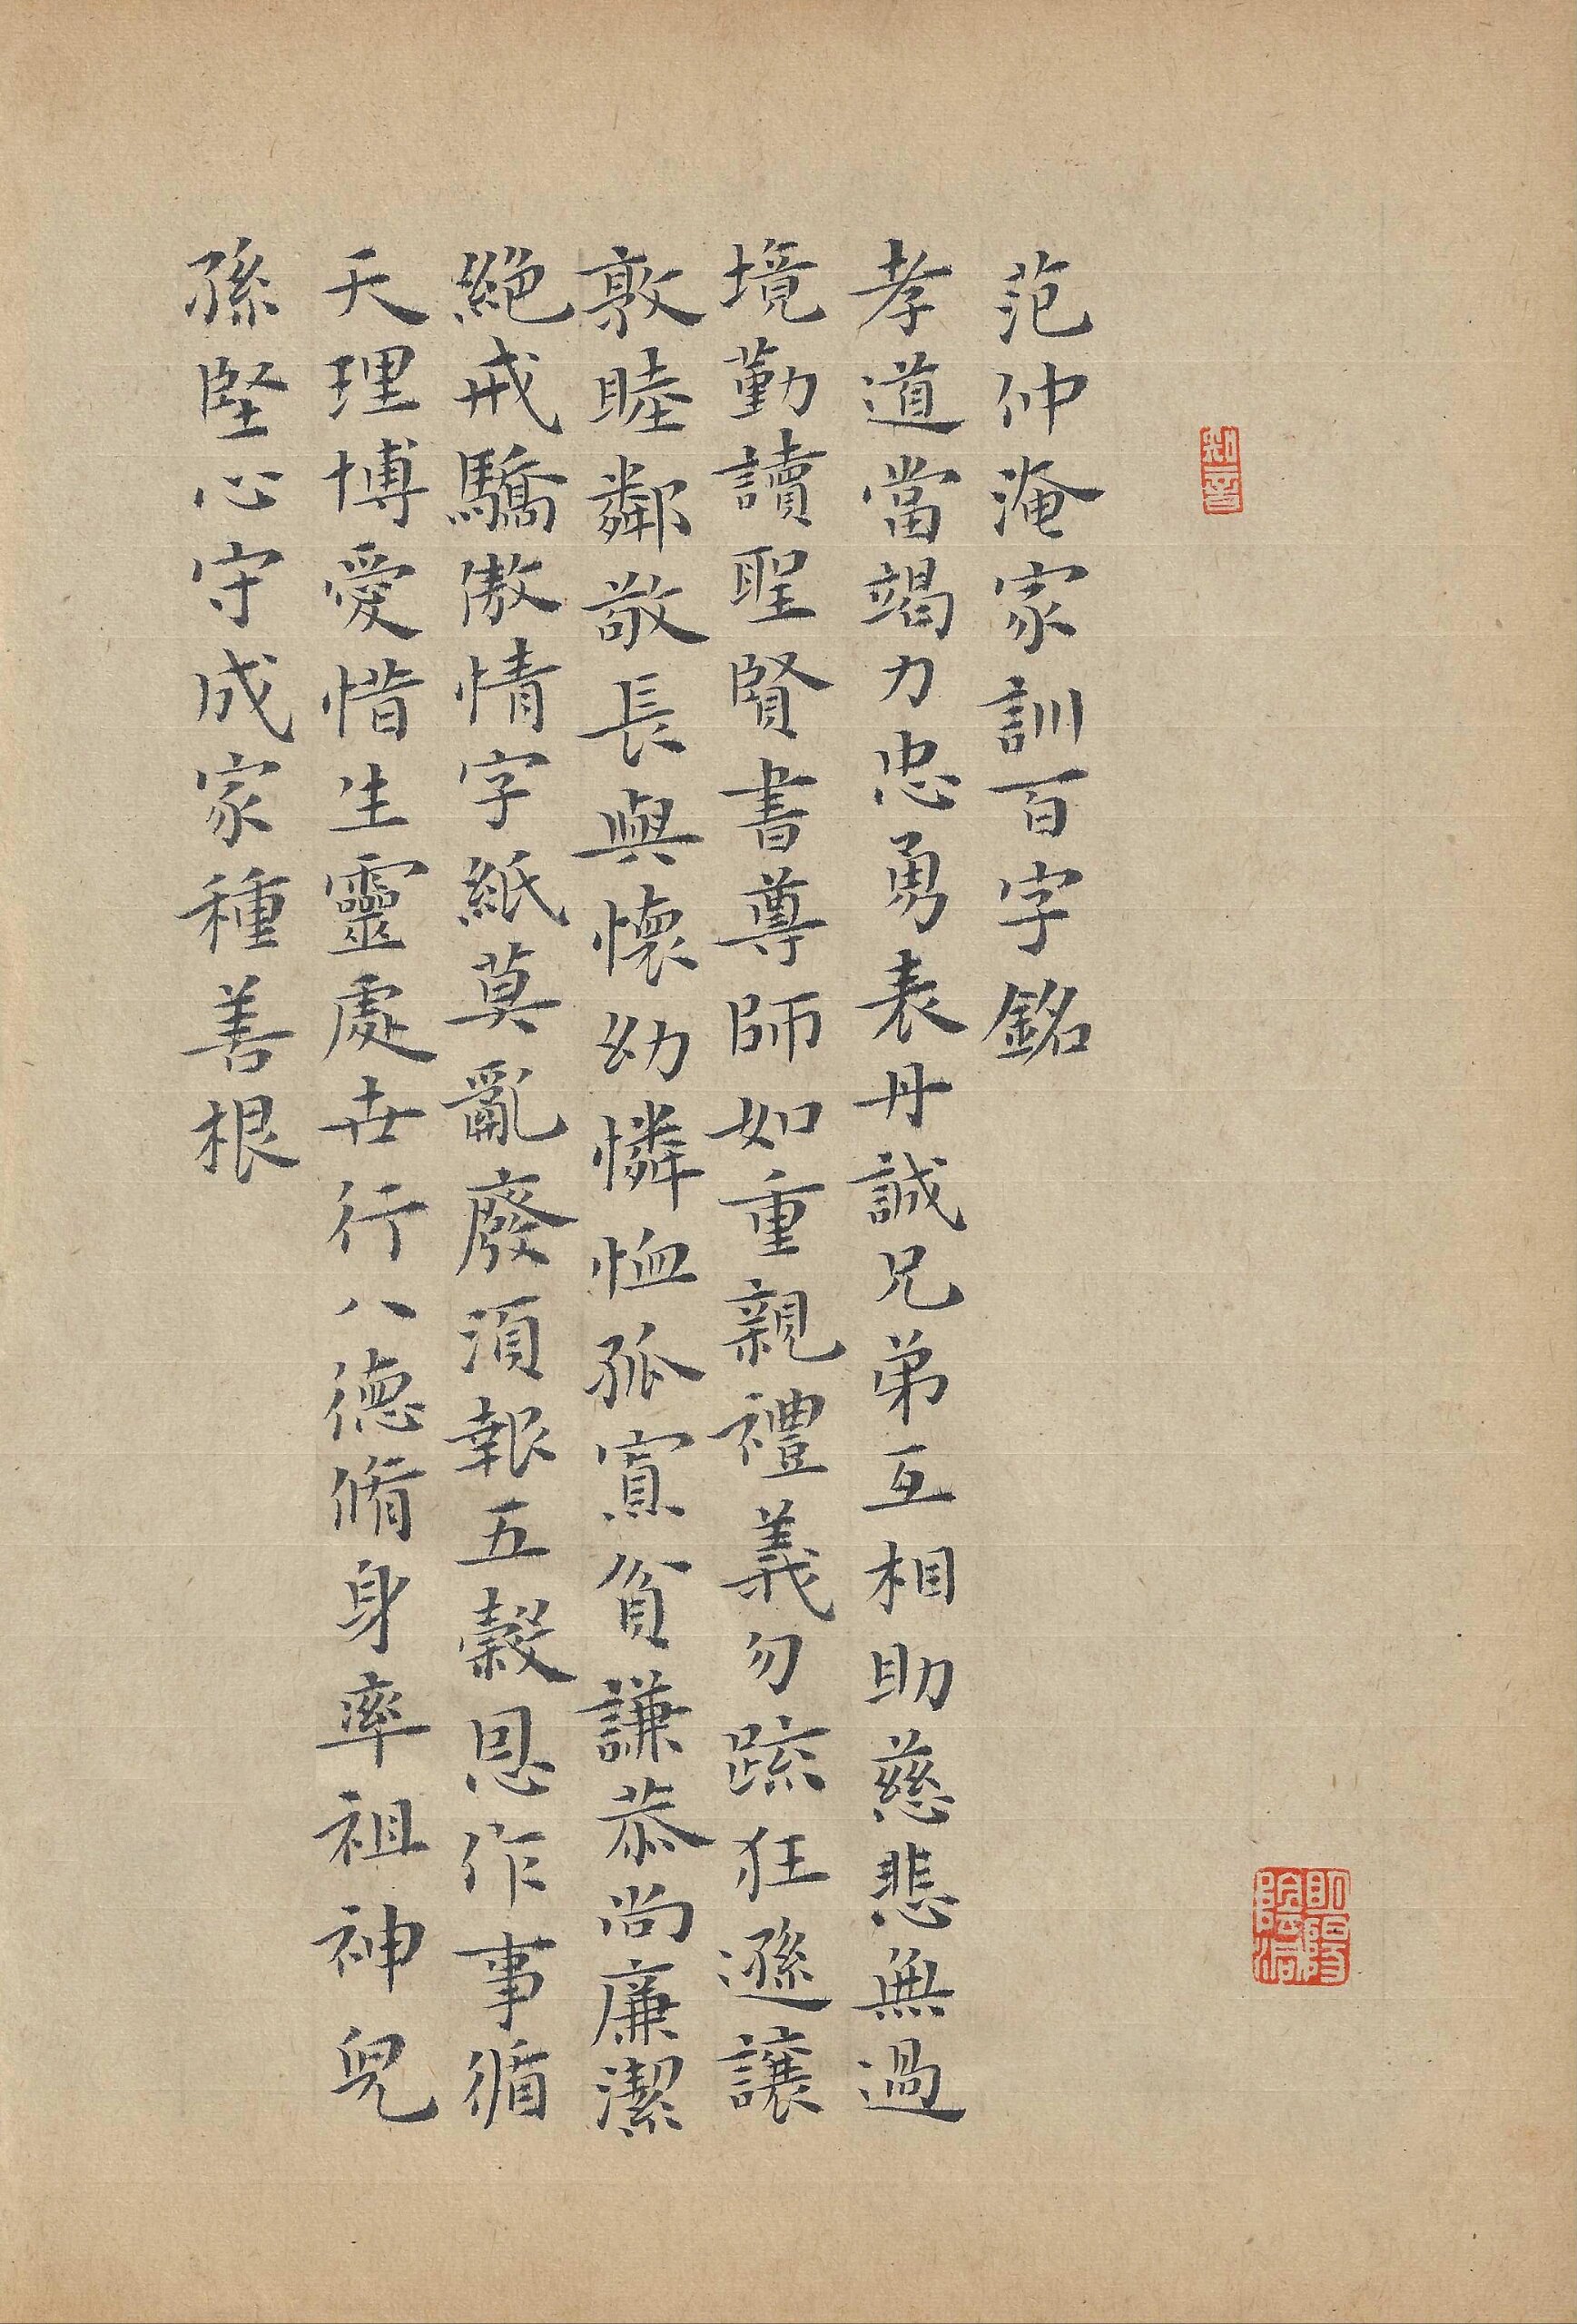 范仲淹家訓百字銘
孝道當竭力忠勇表丹誠兄弟互相助慈悲無過
境勤讀聖賢書尊師如重親禮義勿疏狂遜讓
敦睦鄰敬長與懷幼憐恤孤寡貧謙恭尚廉潔
絕戒驕傲情字紙莫亂廢須報五穀恩作事循
天理博愛惜生靈處世行八德脩身率祖神兒
孫堅心守成家種善根
知音